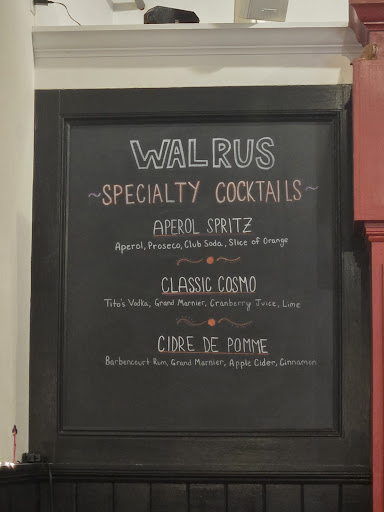 WALRUS
~SPECIALTY COCKTAILS~
APEROL SPRITZ
Aperol, Proseco, Club Soda, Slice of Orange
CLASSIC COSMO
Tito's Vodka, Grand Marnier, Cranberry Juice, Lime
CIDRE DE POMME
Barbencourt Rum, Grand Marnier, Apple Cider, Cinnamon